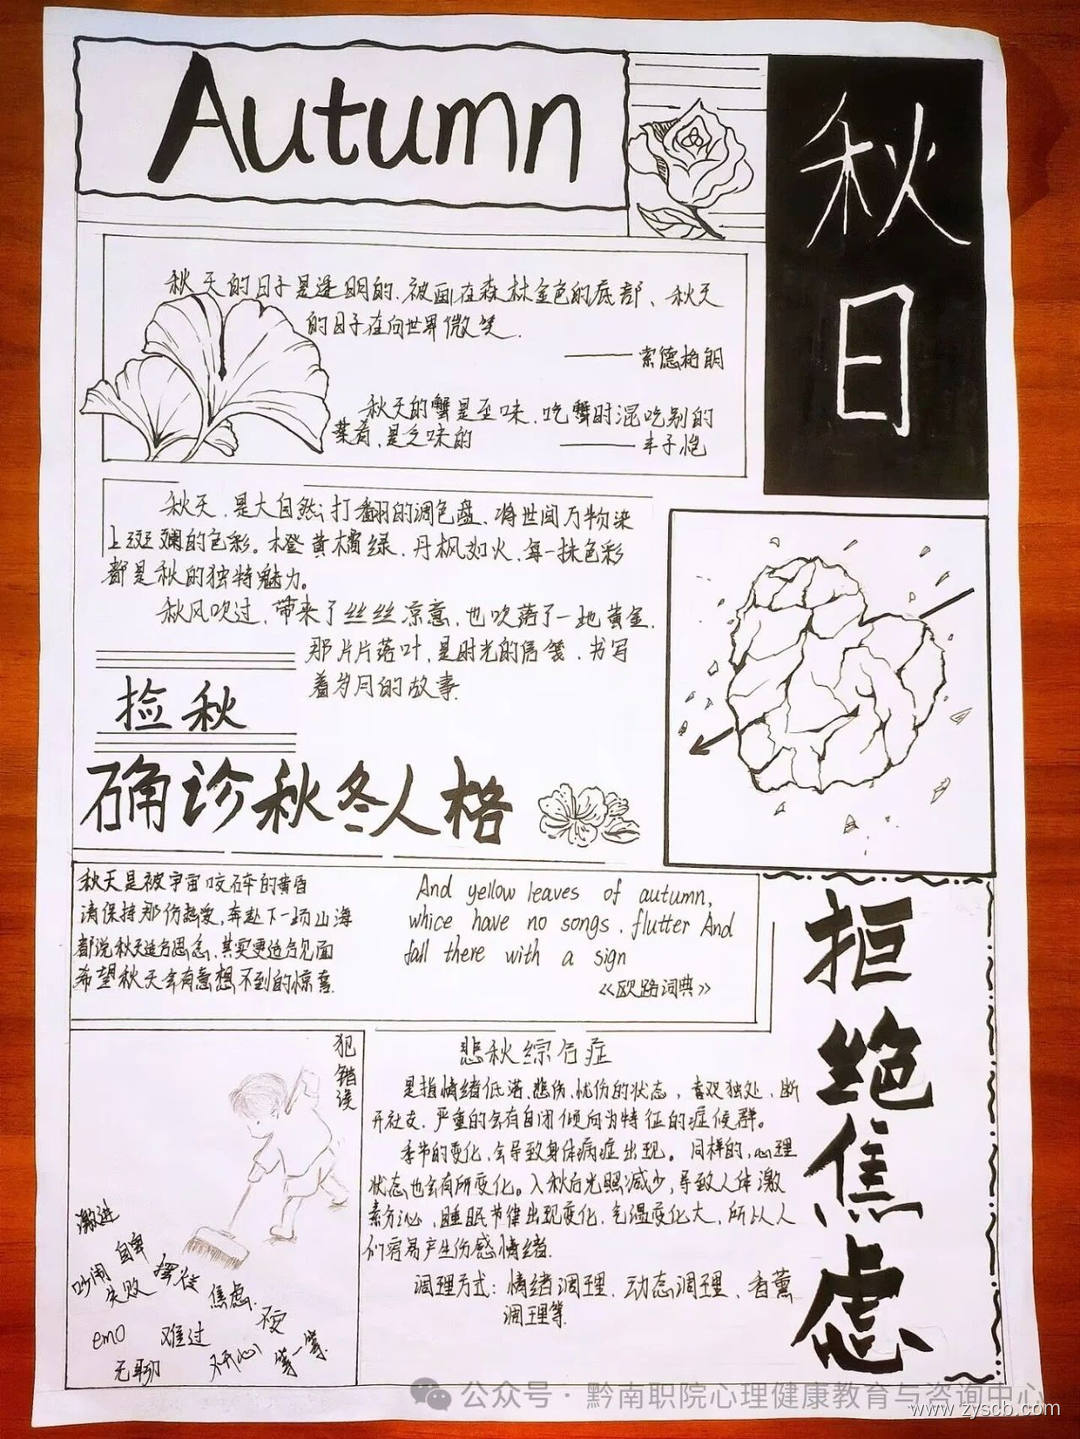 Autumn
秋日
秋天的日子是透明的、被画在森林金色的底部、秋天
的日子在向世界微笑.
——索德格朗
秋天的蟹是至味.吃蟹时混吃别的
菜肴,是乏味的
——丰子恺
秋天,是大自然打翻的调色盘、将世间万物染
上斑斓的色彩。橙黄橘绿.丹枫如火,每一抹色彩
都是秋的独特魅力。
秋风吹过,带来了丝丝凉意,也吹落了一地黄金.
那片片落叶,是时光的信笺.书写
着岁月的故事.
捡秋
确诊秋冬人格
秋天是被宇宙咬碎的黄昏
请保持那份热爱,奔赴下一场山海
都说秋天适合思念、其实更适合见面
希望秋天会有意想不到的惊喜.
And yellow leaves of autumn,
whice have no songs. flutter And
fall there with a sign
《欧路词典》
拒绝焦虑
犯错误
激进
自卑
吵闹
失败
摆烂
焦虑
emo
难过
不安
无聊
不开心
等一等.
悲秋综合症
是指情绪低落、悲伤、忧伤的状态,喜欢独处、断
开社交.严重的会有自闭倾向为特征的症候群。
季节的变化,会导致身体病症出现。同样的,心理
状态也会有所变化。入秋后光照减少,导致人体激
素分泌,睡眠节律出现变化.气温变化大,所以人
们容易产生伤感情绪.
调理方式:情绪调理、动态调理、香薰
调理等.
公众号·黔南职院心理健康教育与咨询中心
www.zyscb.com